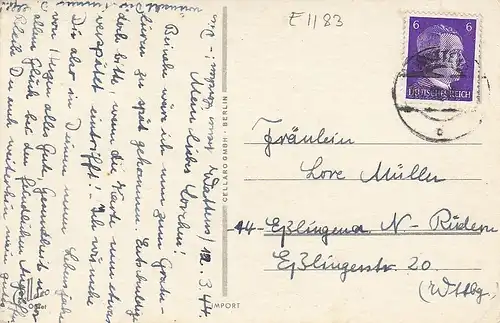 E 1183
6 6
DEUTSCHES REICH
Fräulein
Lore Müller
14-Eßlingen a. N-Rüdern
Eßlingerstr. 20
(Wttbg.)
CELLARO GMBH · BERLIN
IMPORT
Wattens, 12.3.44
Mein liebes Lorchen!
Beinahe wär ich nun zum Gratu-
lieren zu spät gekommen. Entschuldige
doch bitte, wenn die Karte nun etwas
verspätet eintrifft! - Ich wünsche
Dir aber in Deinem neuen Lebensjahr
von Herzen alles Gute, Gesundheit u.
allem Glück bei den
Bleibe Du auch weiterhin mein gutes